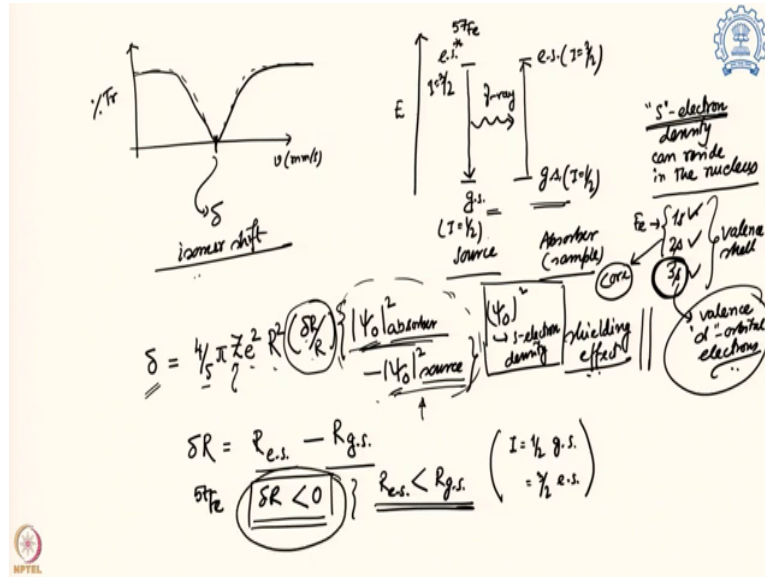 57Fe
% Tr
υ(mm/s)
δ
isomer shift
E
e.s.*
I=3/2
γ-ray
g.s.
(I=1/2)
Source
e.s.(I=3/2)
g.s.(I=1/2)
Absorber
(sample)
"s"-electron
density
can reside
in the nucleus
Fe → 1s ✓
2s ✓
3s ✓
valence
shell
core
valence
"d"-orbital
electrons
δ = 4/5 π Ze² R² (δR/R) { |Ψ₀|² absorber
− |Ψ₀|² source }
|Ψ₀|²
↳ s-electron
density
shielding
effect
δR = R e.s. − R g.s.
57Fe δR < 0 } R e.s. < R g.s.
( I = 1/2 g.s.
= 3/2 e.s. )
NPTEL